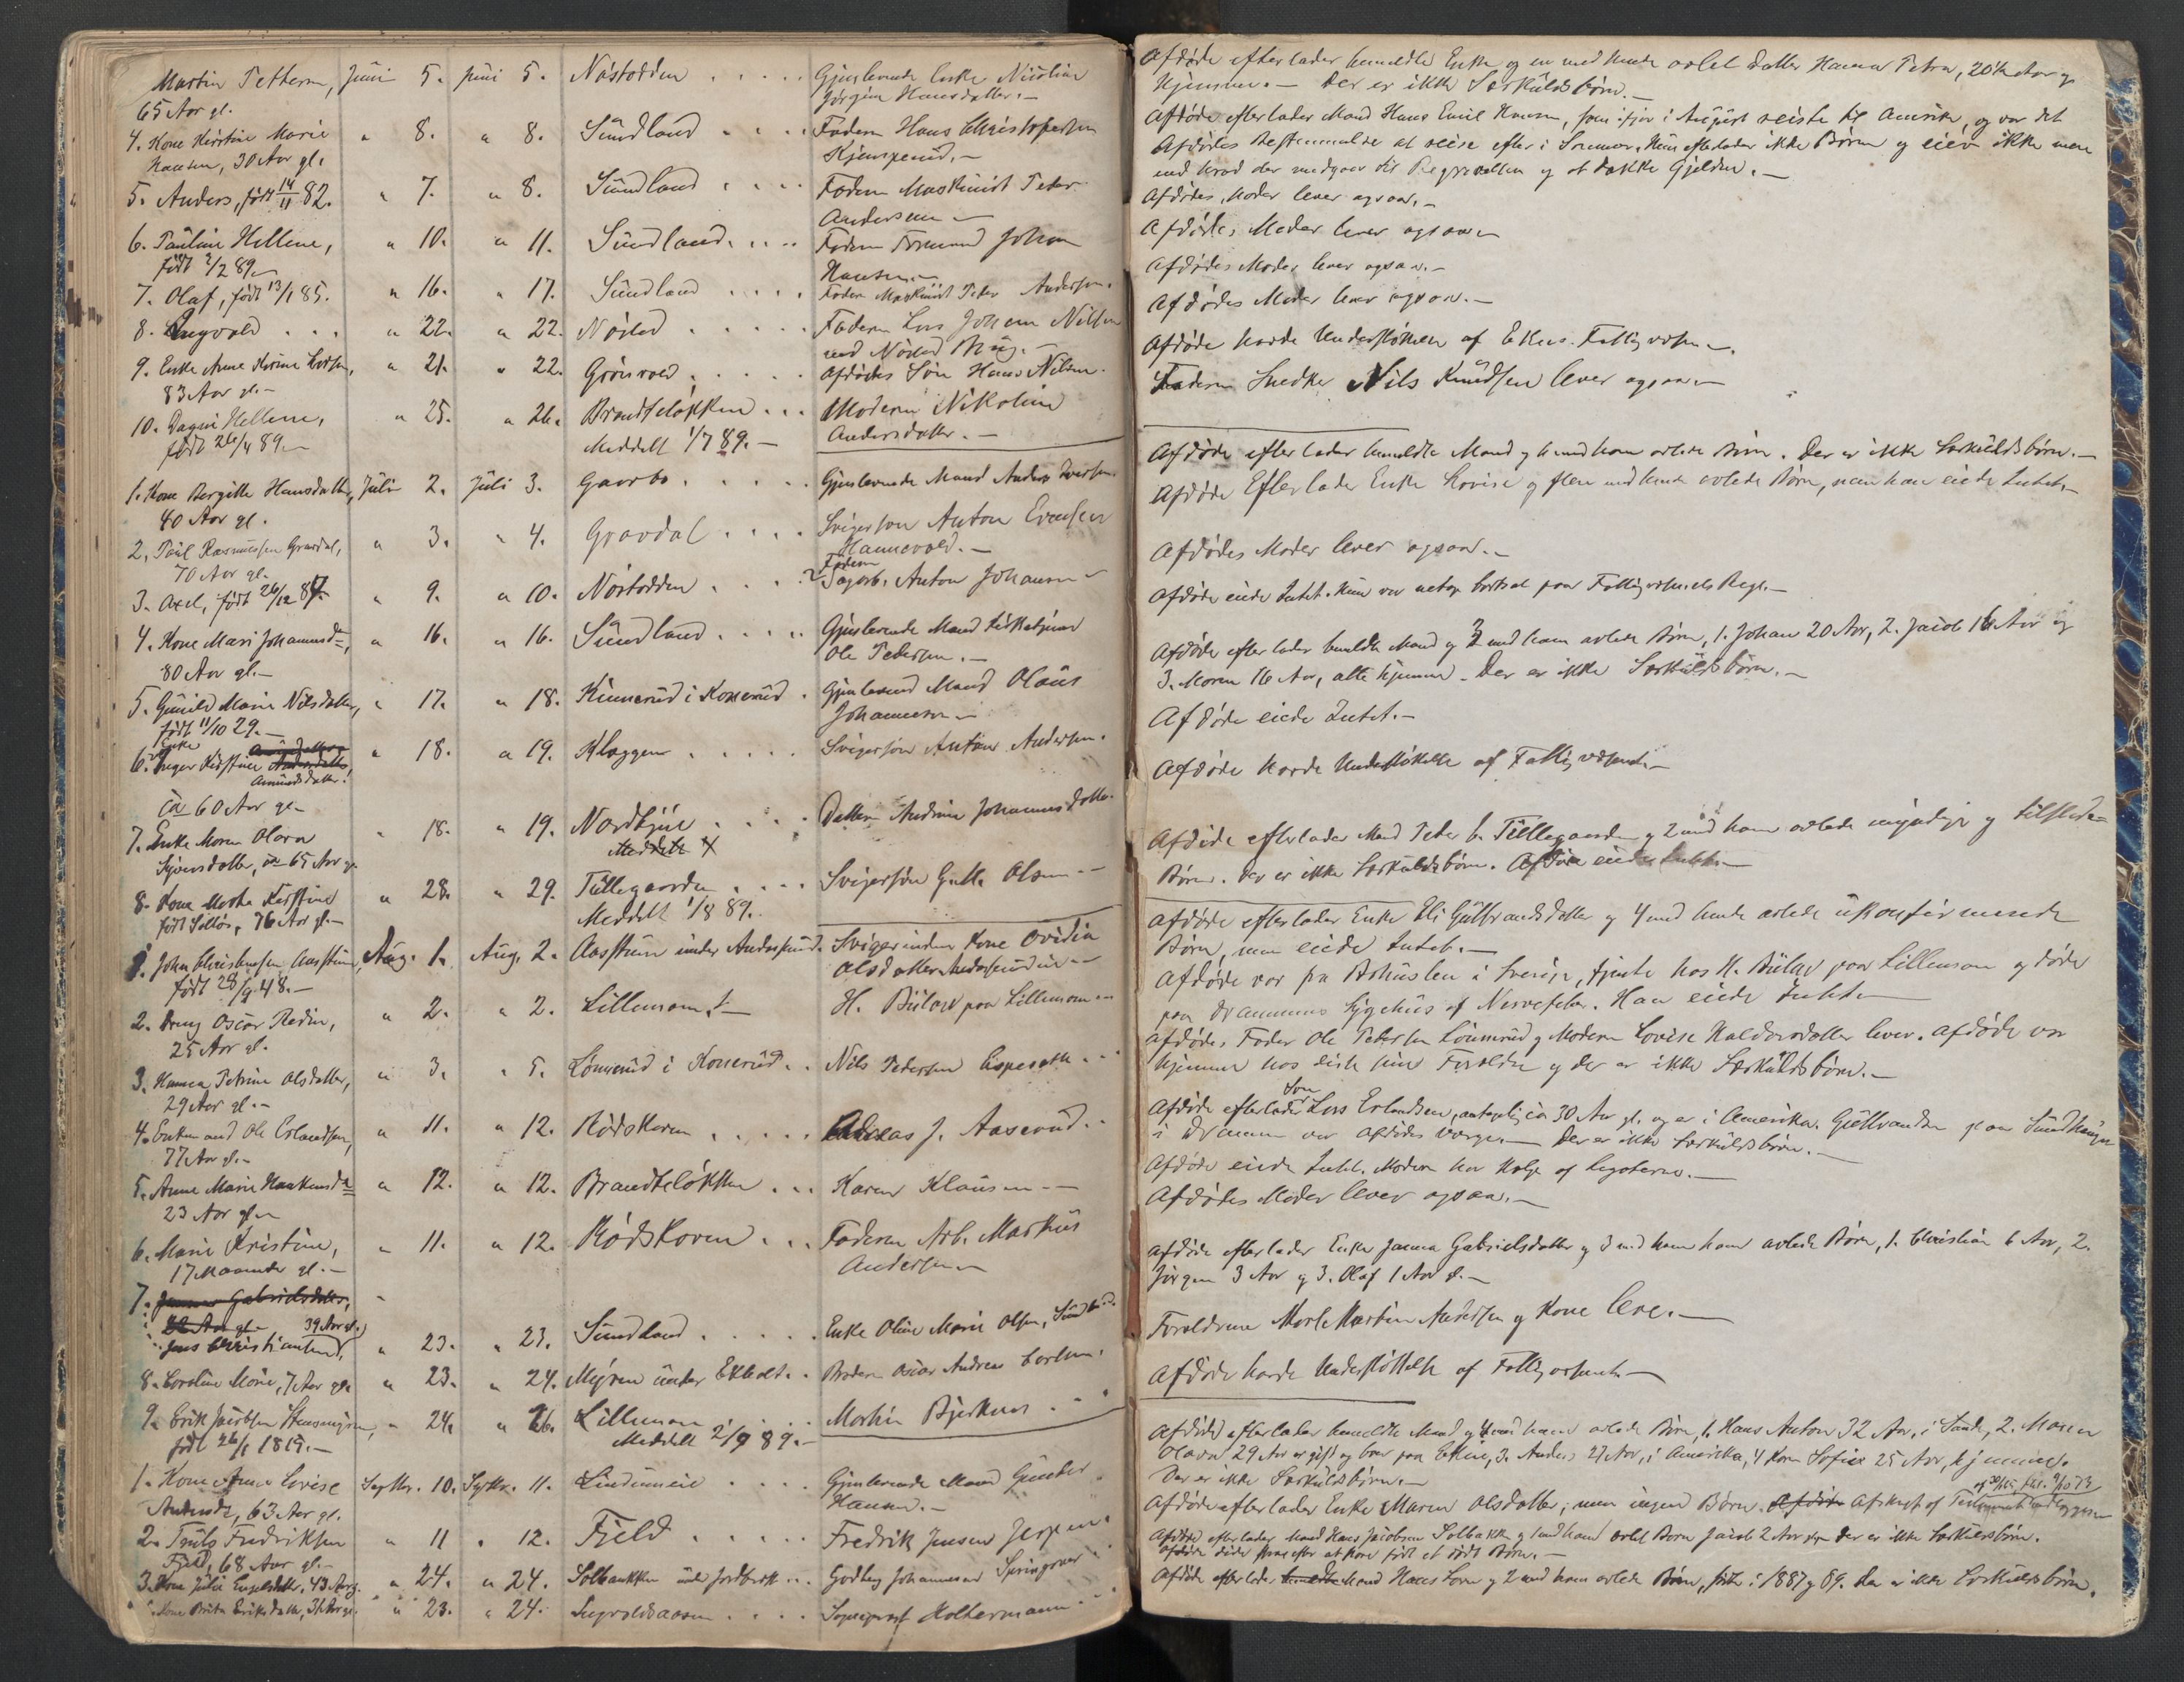 Martin Pettersen, Juni 5. Juni 5. Nøstodden . . . . . Gjenlevende Enke Nicoline
65 Aar gl. Jørgine Hansdatter. —
4. Kone Kirstine Marie " 8. " 8. Sundland . . . . Faderen Hans Christophersen
Hansen, 30 Aar gl.
5. Anders, født 14/11 82. " 7. " 8. Sundland . . . . Faderen Maskinist Peter
Andersen —
6. Pauline Hellene, " 10. " 11. Sundland. . . . . Faderen Formand Johan
født 2/2 89. — Hansen. —
7. Olaf, født 13/1 85. " 16. " 17. Sundland . . . . Faderen Maskinist Peter Andersen.
8. Ingvald . . . " 22. " 22. Nøsted . . . . . Faderen Lars Johan Nilsen
ved Nøsted Brug. —
9. Enke Anne Karine Larsen, " 21. " 22. Grønvold . . . . . Afdødes Søn Hans Nilsen.
83 Aar gl. —
10. Dagni Hellene, " 25. " 26. Brandteløkken . . . Moderen Nikoline
født 26/4 89. — Meddelt 1/7 89. — Andersdatter. —
1. Kone Bergitte Hansdatter, Juli 2. Juli 3. Gaarbo . . . . . Gjenlevende Mand Anders Iversen.
40 Aar gl.
2. Paul Rasmussen Gravdal, " 3. " 4. Gravdal . . . . Svigersøn Anton Evensen
70 Aar gl. Hannevold. —
Faderen
3. Axel, født 26/12 87. " 9. " 10. Nøstodden . . . . Sagarb. Anton Johansen —
4. Kone Mari Johannesd., " 16. " 16. Sundland . . . . . Gjenlevende Mand
80 Aar gl. — Ole Pedersen. —
5. Gunild Marie Nilsdatter, " 17. " 18. Kinnerud i Konnerud . Gjenlevende Mand Olaus
født 11/10 29. — Johannesen —
Enke
6. Inger Kirstine " 18. " 19. Klaggen . . . . . Svigersøn Anton Andersen.
Amundsdatter!
ca 60 Aar gl. —
7. Enke Maren Olava " 18. " 19. Nordbye . . . . Datteren Andrine Johannesdatter.
ca 65 Aar gl. Meddelt
8. Kone Marthe Kirstine " 28. " 29. Tollegaarden . . . . Svigersøn G. M. Olsen —
76 Aar gl. — Meddelt 1/8 89.
1. Johan Christensen Aasstuen, Aug. 1. Aug. 2. Aasstuen under Andorsrud. Svigerinden Kone Ovidia
født 28/9 48. — Olsdatter
2. Oscar Redin, " 2. " 2. Lillemoen. — H. Bülow paa Lillemoen —
25 Aar gl.
3. Hanna Petrine Olsdatter, " 3. " 5. Lønnerud i Konnerud . . Nils Pedersen . . .
29 Aar gl. —
4. Enkemand Ole Erlandsen, " 11. " 12. Rødskoven . . . . . Andreas J. Aaserud . .
77 Aar gl. —
5. Anne Marie Haakensd. " 12. " 12. Brandteløkken . . . Karen Klausen —
23 Aar gl. —
6. Marie Kristine, " 11. " 12. Rødskoven . . . Faderen Arb. Markus
17 Maaneder gl. — Andersen —
7. Gabrielsdatter,
39 Aar gl.
Jens Christiansen, " 23. " 23. Sundland . . . . . Enke Oline Marie Olsen, Sundland.
8. Caroline Marie, 7 Aar gl. " 23. " 24. Myren under Ekholt . . Broderen Oscar Andreas Carlsen.
9. Erik Jacobsen " 24. " 26. Lillemoen . . . . Martin Bjerknes . .
født 26/1 1819. — Meddelt 2/9 89. —
1. Kone Anne Lovise Septbr. 10. Septbr. 11. Gjenlevende Mand
63 Aar gl. Hansen. —
2. Truls Fredriksen " 11 " 12. Fjeld . . . . . Fredrik Jensen
Fjeld, 68 Aar gl. —
3. Kone Julie 43 Aar g. " 24. " 24. Solbakken under . . Johannesen
Kone Berthe Eriksdatter " 23. " 24. . . . . Sogneprest Holtermann . .
Afdøde efterlader bemeldte Enke og en med hende avlet Datter Hanna Petra, 20 Aar og
hjemme. — Der er ikke Særkuldsbørn. —
Afdøde efterlader Mand Hans Emil Hansen, som ifjor i August reiste til Amerika, og var det
Afdødes Bestemmelse at reise efter i Sommer. Hun efterlader ikke Børn og eier ikke mere
end hvad der medgaar til Begravelsen og at dække Gjelden. —
Afdødes Moder lever ogsaa. —
Afdødes Moder lever ogsaa —
Afdødes Moder lever ogsaa. —
Afdødes Moder lever ogsaa. —
Afdøde havde Understøttelse af Ekers Fattigvæsen —.
Faderen Snedker Nils Knudsen lever ogsaa —
Afdøde efterlader bemeldte Mand og 6 med ham avlede Børn. Der er ikke Særkuldsbørn. —
Afdøde Efterlader Enke Lovise og flere med hende avlede Børn, men han eiede Intet. —
Afdødes Moder lever ogsaa. —
Afdøde eiede Intet. Hun var netop bortsat paa Fattigvæsenets Regn. —
Afdøde efterlader bemeldte Mand og 3 med ham avlede Børn, 1. Johan 20 Aar, 2. Jacob 18 Aar og
3. Maren 16 Aar, alle hjemme. Der er ikke Særkuldsbørn. —
Afdøde eiede Intet. —
Afdøde havde Understøttelse af Fattigvæsenet. —
Afdøde efterlader Mand Peter C. Tollegaarden og 2 med ham avlede myndige og tilstede-
Børn. Der er ikke Særkuldsbørn. Afdøde eiede Intet —
Afdøde efterlader Enke Eli Gulbrandsdatter og 4 med hende avlede ukonfirmerede
Børn, men eiede Intet. —
Afdøde var fra Bohuslen i Sverige, tjente hos H. Bülow paa Lillemoen og døde
paa Drammens Sygehus af Nervefeber. Han eiede Intet —
Afdødes Fader Ole Pedersen Lønnerud og Moderen Lovise Haldorsdatter lever. Afdøde var
hjemme hos disse sine Forældre og der er ikke Særkuldsbørn. —
Søn
Afdøde efterlader Lars Erlandsen, antagelig ca 30 Aar gl. og er i Amerika. paa Sundhaugen
i Drammen var Afdødes Værge. — Der er ikke Særkuldsbørn. —
Afdøde eiede Intet. Moderen har Hjelp af Legaterne. —
Afdødes Moder lever ogsaa. —
Afdøde efterlader Enke Janna Gabrielsdatter og 3 med ham avlede Børn, 1. Christian 6 Aar, 2.
Jørgen 3 Aar og 3. Olaf 1 Aar gl. —
Forældrene Martin og Kone lever. —
Afdøde havde Understøttelse af Fattigvæsenet —
Afdøde efterlader bemeldte Mand og 4 med ham avlede Børn, 1. Hans Anton 32 Aar, i Sande, 2. Maren
Olava 29 Aar er gift og bor paa Eker, 3. Anders 27 Aar, i Amerika, 4 Karen Sofie 25 Aar, hjemme.
Der er ikke Særkuldsbørn. —
Afdøde efterlader Enke Maren Olsdatter, men ingen Børn. Afskrift af Testament
Afdøde efterlader Mand Hans Jacobsen Solbakk og 1 med ham avlet Barn Jacob 2 Aar Der er ikke Særkuldsbørn.
Afdøde døde strax efter at have født et dødt Barn. —
Afdøde efterlader Mand Hans Larsen og 2 med ham avlede Børn, født i 1887 og 89. Der er ikke Særkuldsbørn.